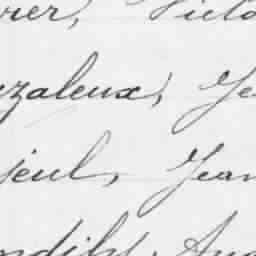 rer, Victo
zaleux, Je
jeul, Jean
ndily, Aug